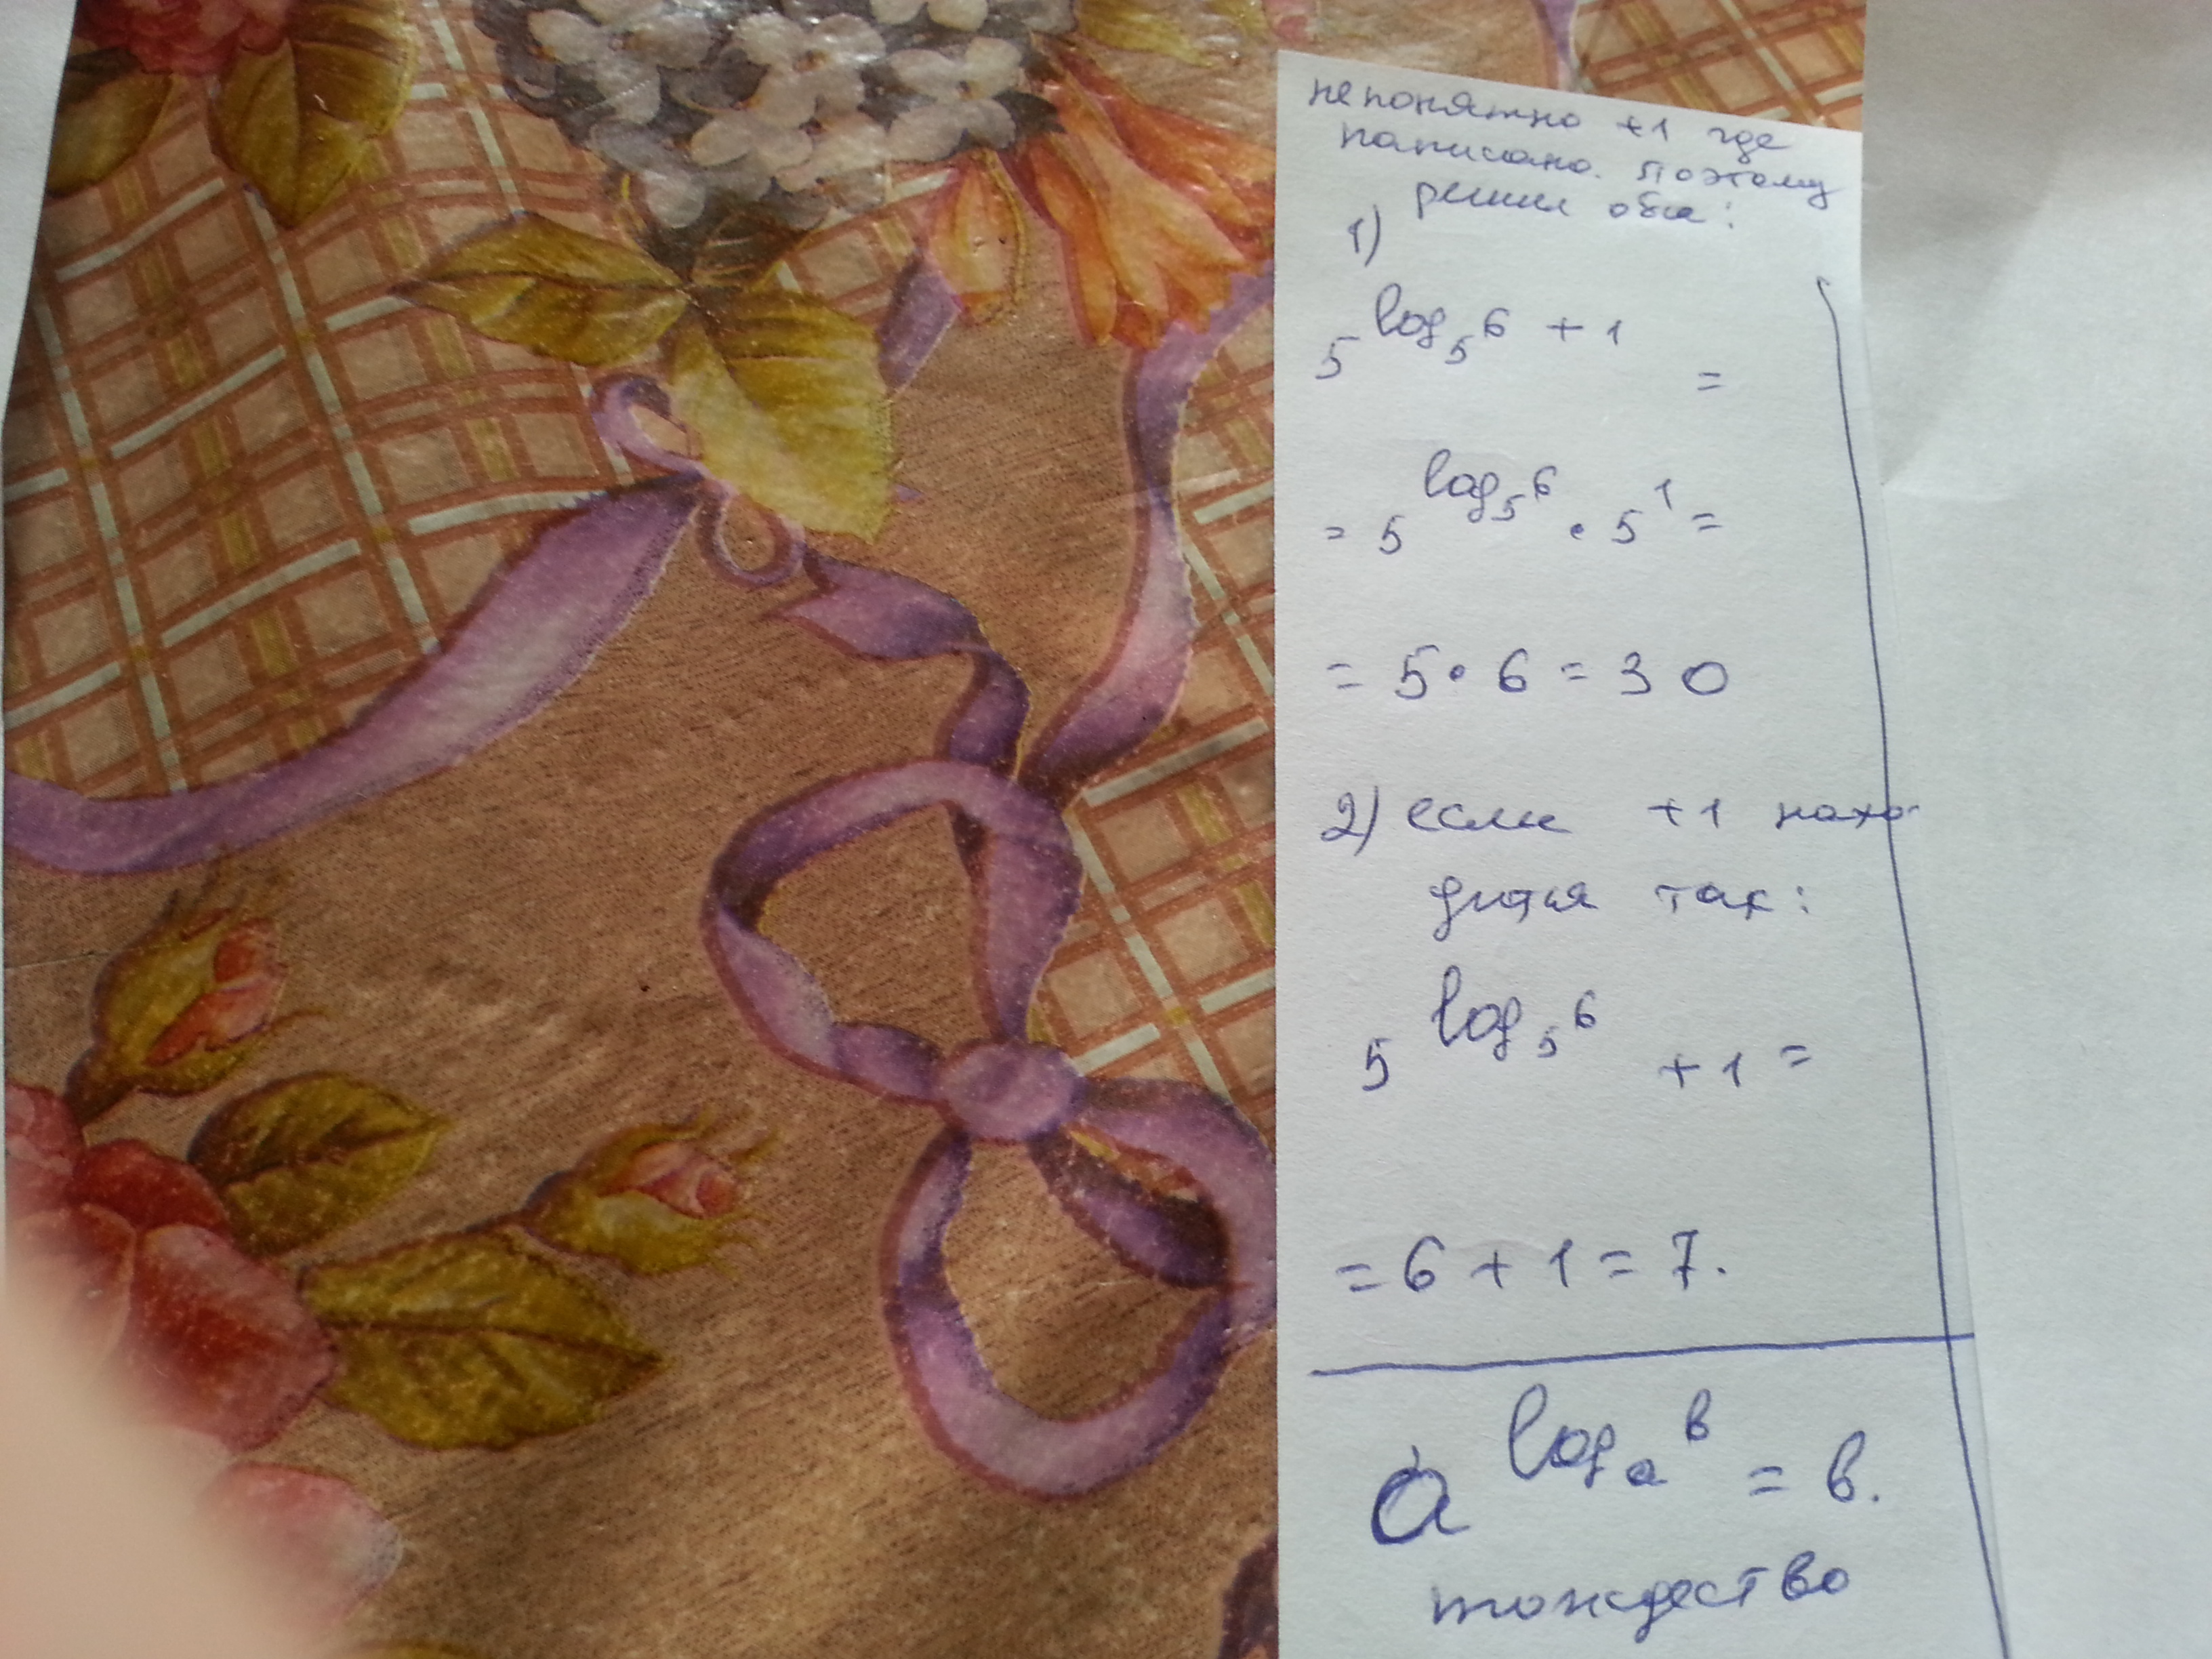 непонятно +1 где
написано. поэтому
решим оба:
1)
5^log_5 6 + 1 =
= 5^log_5 6 · 5^1 =
= 5 · 6 = 30
2) если +1 нахо-
дится так:
5^log_5 6 + 1 =
= 6 + 1 = 7.
a^log_a в = в.
тождество